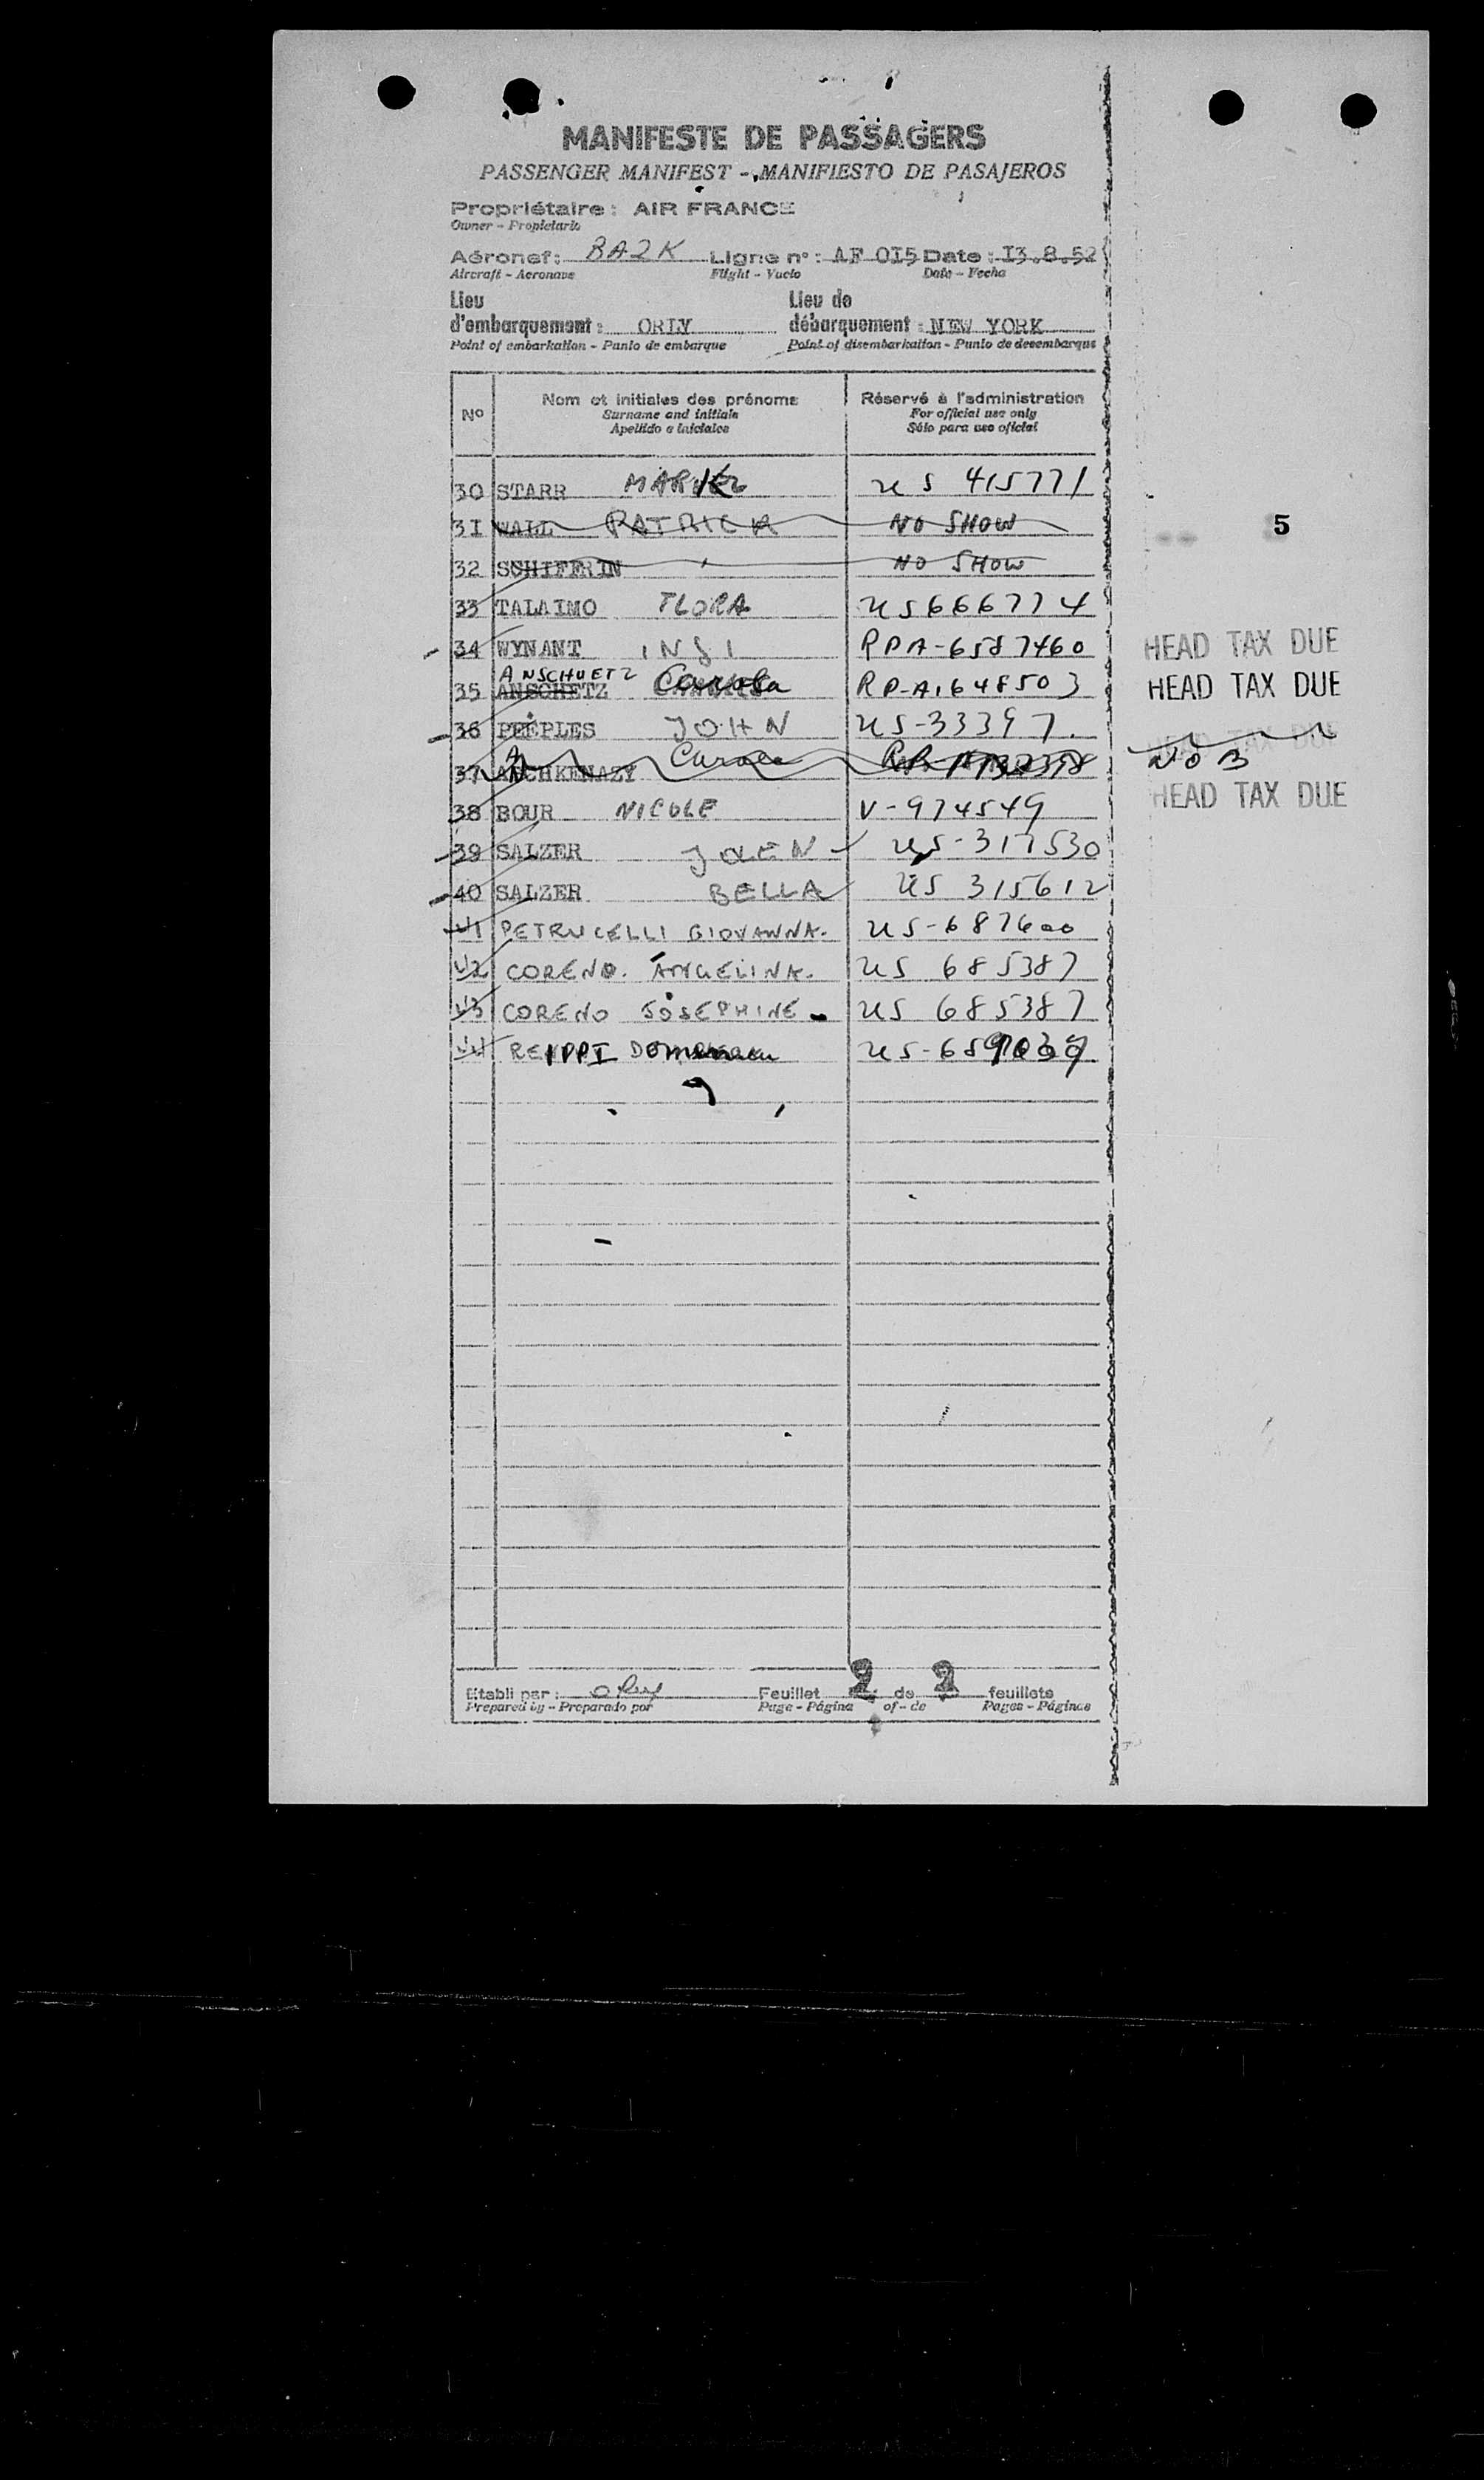 MANIFESTE DE PASSAGERS
PASSENGER MANIFEST - MANIFIESTO DE PASAJEROS
Propriétaire : AIR FRANCE
Owner - Propietario
Aéronef : BAZK Ligne n° : AF 0I5 Date : I3.8.52
Aircraft - Aeronave Flight - Vuelo Date - Fecha
Lieu d'embarquement : ORLY Lieu de débarquement : NEW YORK
Point of embarkation - Punto de embarque Point of disembarkation - Punto de desembarque
N° Nom et initiales des prénoms Réservé à l'administration
Surname and initials For official use only
Apellido e iniciales Sólo para uso oficial
30 STARR US 415771
3I WALL PATRICK NO SHOW 5
32 SCHIFFRIN NO SHOW
33 TALAIMO FLORA US666774
34 WYNANT RPA-6587460 HEAD TAX DUE
ANSCHUETZ
35 ANSCHETZ Carola RP-A1648503 HEAD TAX DUE
36 PEEPLES JOHN US-33397. HEAD TAX DUE
37 ASCHKENAZY Carola NOB
38 BOUR NICOLE V-974549 HEAD TAX DUE
39 SALZER US-317530
40 SALZER BELLA US 315612
41 PETRUCELLI GIOVANNA. US-687600
42 CORENO. ANGELINA. US 685387
43 CORENO JOSEPHINE US 685387
44
Etabli par : Orly Feuillet 2 de 2 feuillets
Prepared by - Preparado por Page - Página of - de Pages - Páginas